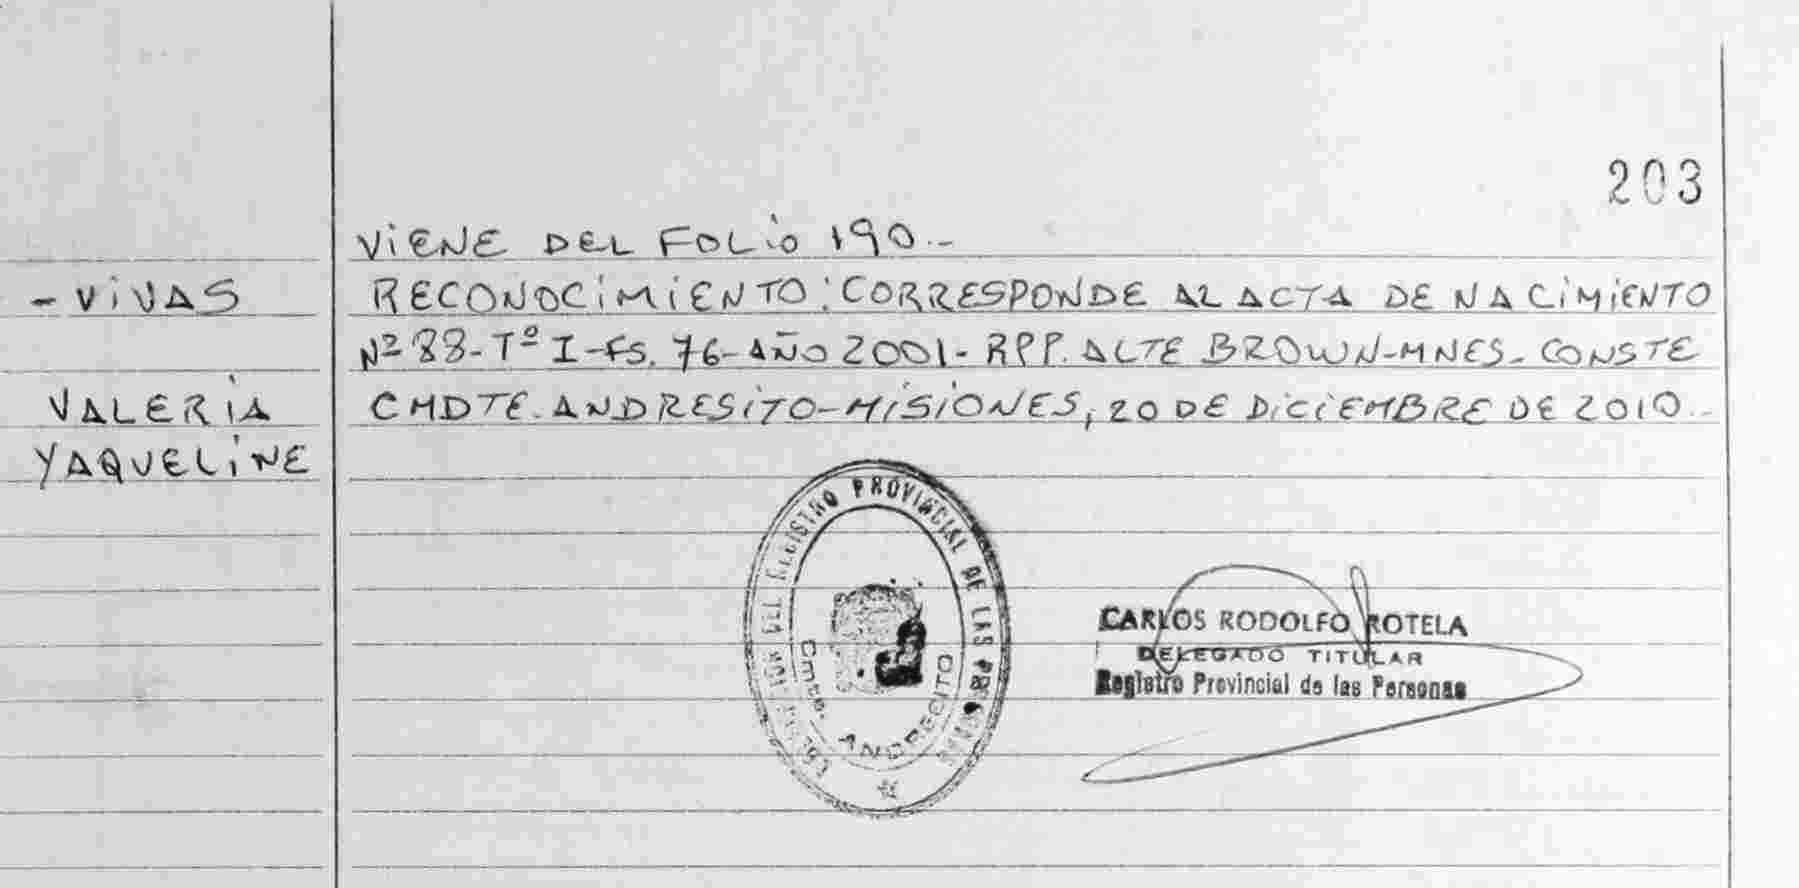 203
VIENE DEL FOLIO 190.-
- VIVAS
RECONOCIMIENTO: CORRESPONDE AL ACTA DE NACIMIENTO
Nº 88-Tº I-FS. 76-AÑO 2001- RPP. ALTE BROWN-MNES- CONSTE
VALERIA
CMDTE. ANDRESITO-MISIONES, 20 DE DICIEMBRE DE 2010.-
YAQUELINE
DEL REGISTRO PROVINCIAL DE LAS
Cmte. ANDRECITO
CARLOS RODOLFO ROTELA
DELEGADO TITULAR
Registro Provincial de las Personas